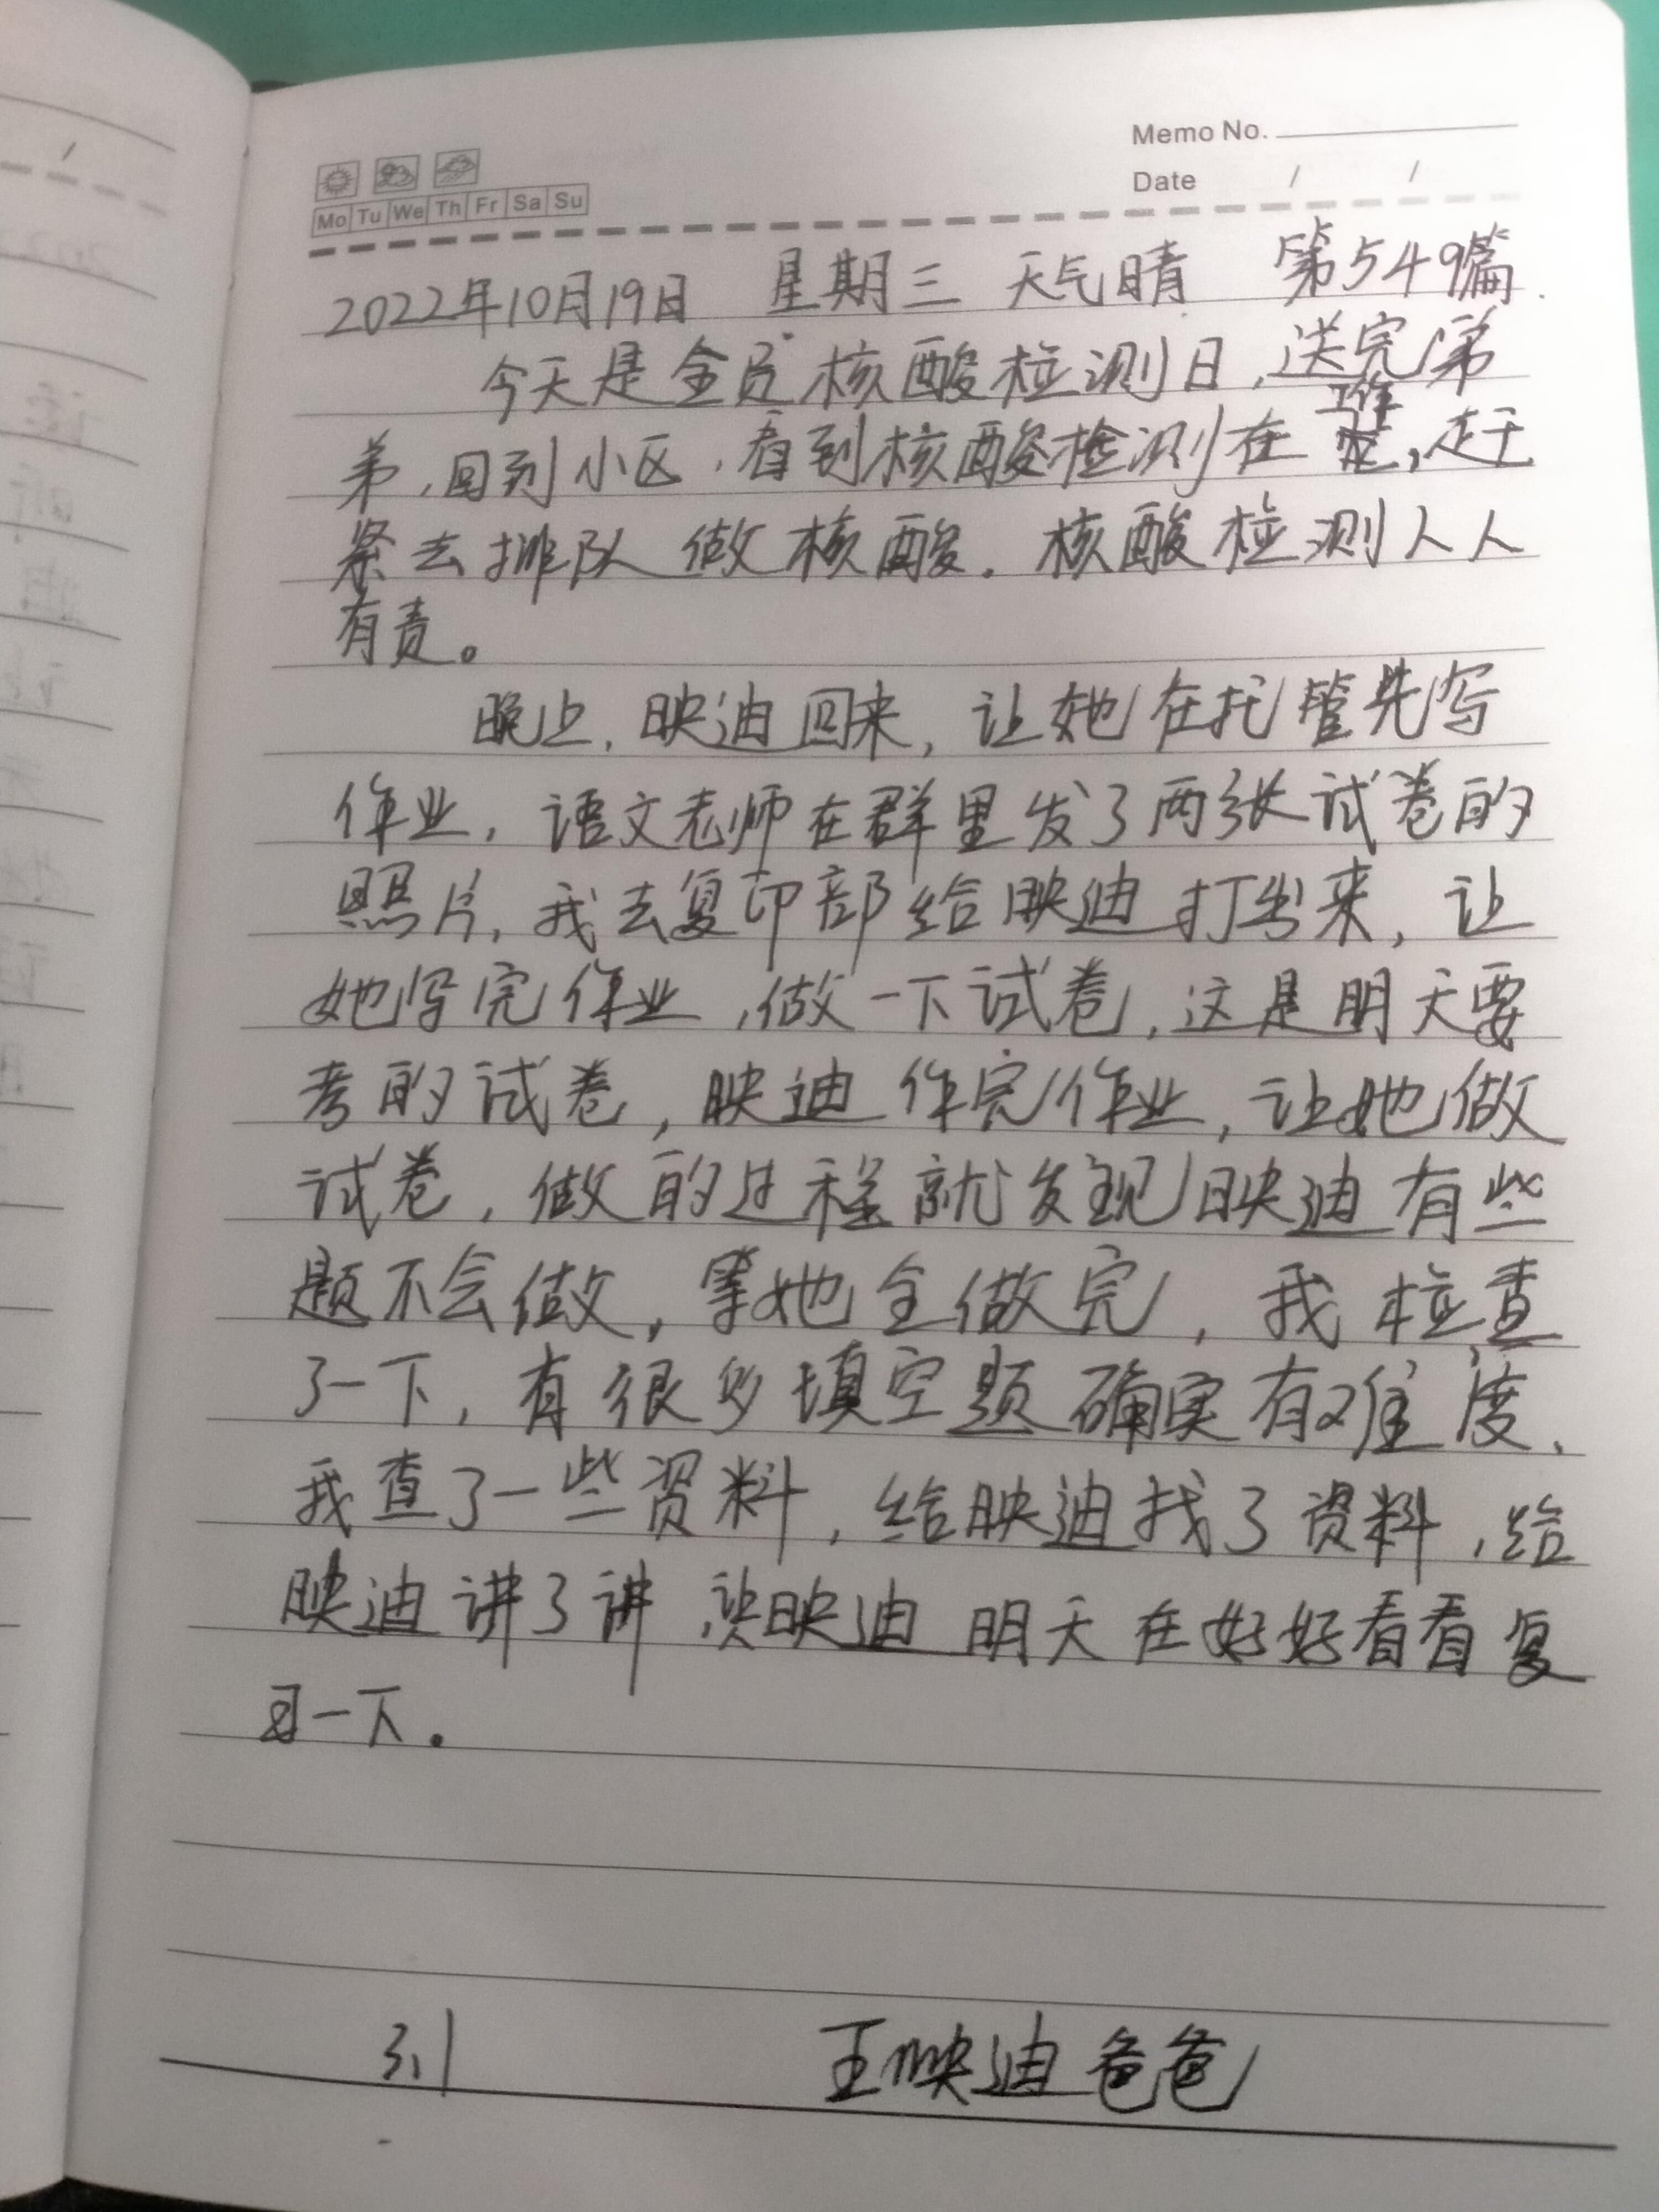 Memo No.
Mo Tu We Th Fr Sa Su
Date / /
2022年10月19日 星期三 天气晴 第549篇.
今天是全员核酸检测日,送完弟
弟,回到小区,看到核酸检测在工作,赶
紧去排队做核酸。核酸检测人人
有责。
晚上,映迪回来,让她在托管先写
作业,语文老师在群里发了两张试卷的
照片,我去复印部给映迪打出来,让
她写完作业,做一下试卷,这是明天要
考的试卷,映迪作完作业,让她做
试卷,做的过程就发现映迪有些
题不会做,等她全做完,我检查
了一下,有很多填空题确实有难度、
我查了一些资料,给映迪找了资料,给
映迪讲了讲,让映迪明天在好好看看复
习一下。
3.1 王映迪爸爸